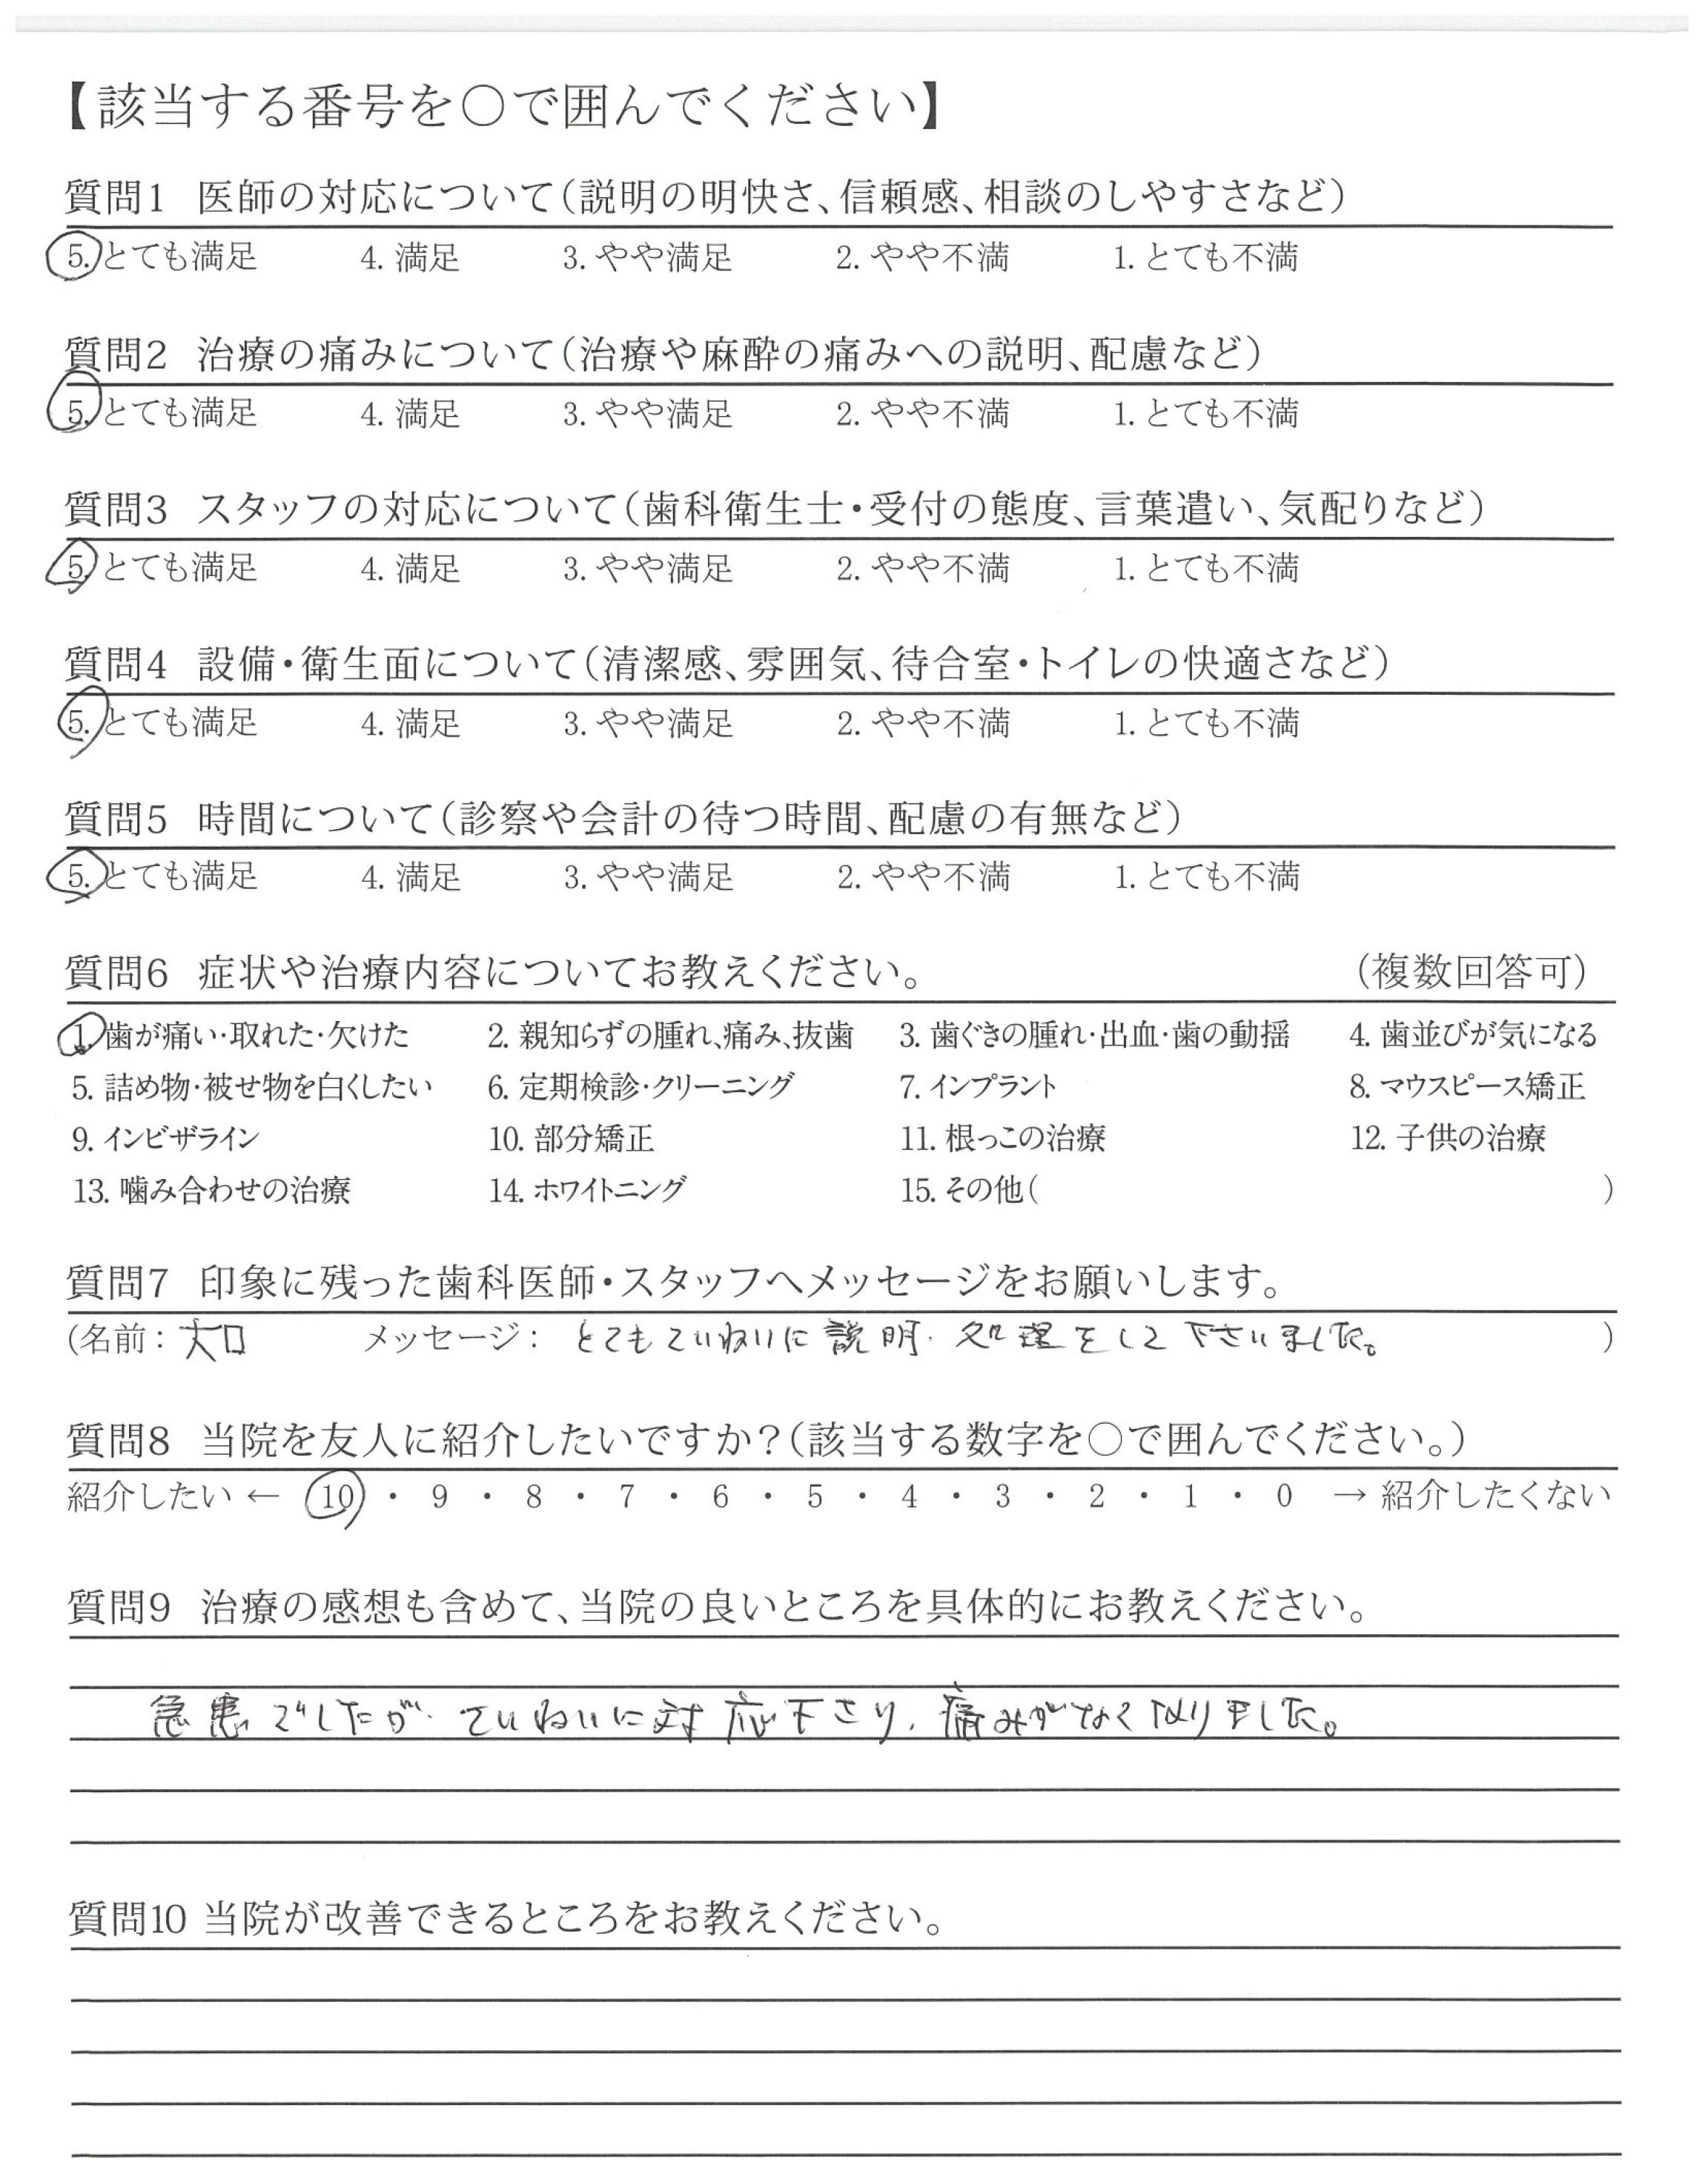 【該当する番号を〇で囲んでください】
質問1 医師の対応について(説明の明快さ、信頼感、相談のしやすさなど)
5. とても満足 4. 満足 3. やや満足 2. やや不満 1. とても不満
質問2 治療の痛みについて(治療や麻酔の痛みへの説明、配慮など)
5. とても満足 4. 満足 3. やや満足 2. やや不満 1. とても不満
質問3 スタッフの対応について(歯科衛生士・受付の態度、言葉遣い、気配りなど)
5. とても満足 4. 満足 3. やや満足 2. やや不満 1. とても不満
質問4 設備・衛生面について(清潔感、雰囲気、待合室・トイレの快適さなど)
5. とても満足 4. 満足 3. やや満足 2. やや不満 1. とても不満
質問5 時間について(診察や会計の待つ時間、配慮の有無など)
5. とても満足 4. 満足 3. やや満足 2. やや不満 1. とても不満
質問6 症状や治療内容についてお教えください。 (複数回答可)
1. 歯が痛い・取れた・欠けた 2. 親知らずの腫れ、痛み、抜歯 3. 歯ぐきの腫れ・出血・歯の動揺 4. 歯並びが気になる
5. 詰め物・被せ物を白くしたい 6. 定期検診・クリーニング 7. インプラント 8. マウスピース矯正
9. インビザライン 10. 部分矯正 11. 根っこの治療 12. 子供の治療
13. 噛み合わせの治療 14. ホワイトニング 15. その他( )
質問7 印象に残った歯科医師・スタッフへメッセージをお願いします。
(名前: 大口 メッセージ: とてもていねいに説明・処理をして下さいました。 )
質問8 当院を友人に紹介したいですか?(該当する数字を〇で囲んでください。)
紹介したい ← 10 ・ 9 ・ 8 ・ 7 ・ 6 ・ 5 ・ 4 ・ 3 ・ 2 ・ 1 ・ 0 → 紹介したくない
質問9 治療の感想も含めて、当院の良いところを具体的にお教えください。
急患でしたが、ていねいに対応下さり、痛みがなくなりました。
質問10 当院が改善できるところをお教えください。